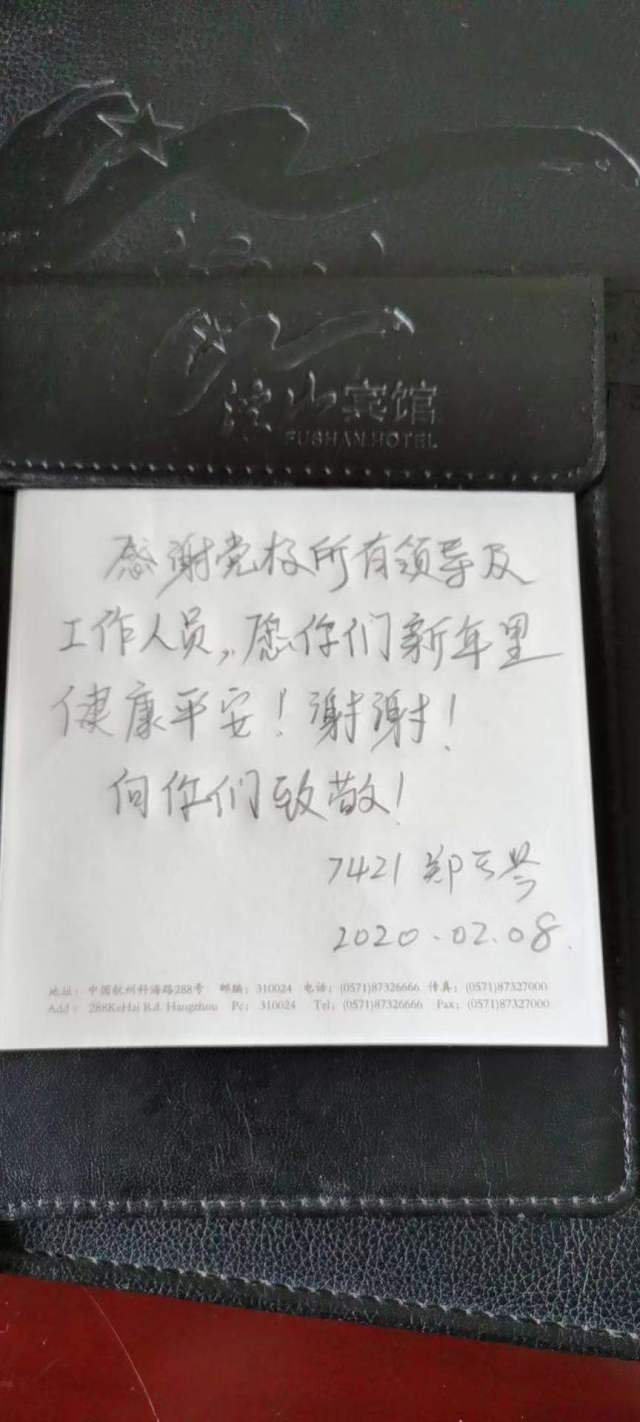 浮山宾馆
FUSHAN HOTEL
感谢党校所有领导及
工作人员,愿你们新年里
健康平安!谢谢!
向你们致敬!
7421 郑
2020.02.08.
地址:中国杭州科海路288号 邮编:310024 电话:(0571)87326666 传真:(0571)87327000
Add: 288KeHai Rd. Hangzhou Pc: 310024 Tel:(0571)87326666 Fax:(0571)87327000